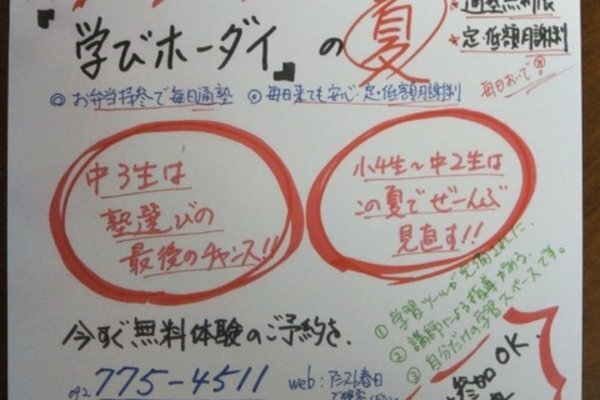 『学びホーダイ』の夏
定・低額月謝制
毎日おいで
◎お弁当持参で毎日通塾 ◎毎日来ても安心・定・低額月謝制
中3生は
塾選びの
最後のチャンス!!
小4生〜中2生は
この夏でぜーんぶ
見直す!!
①学習ツールが完備された、
②講師による指導がある、
③自分だけの学習スペースです。
今すぐ無料体験のご予約を、
092 775-4511
web:アシスト春日
参加OK